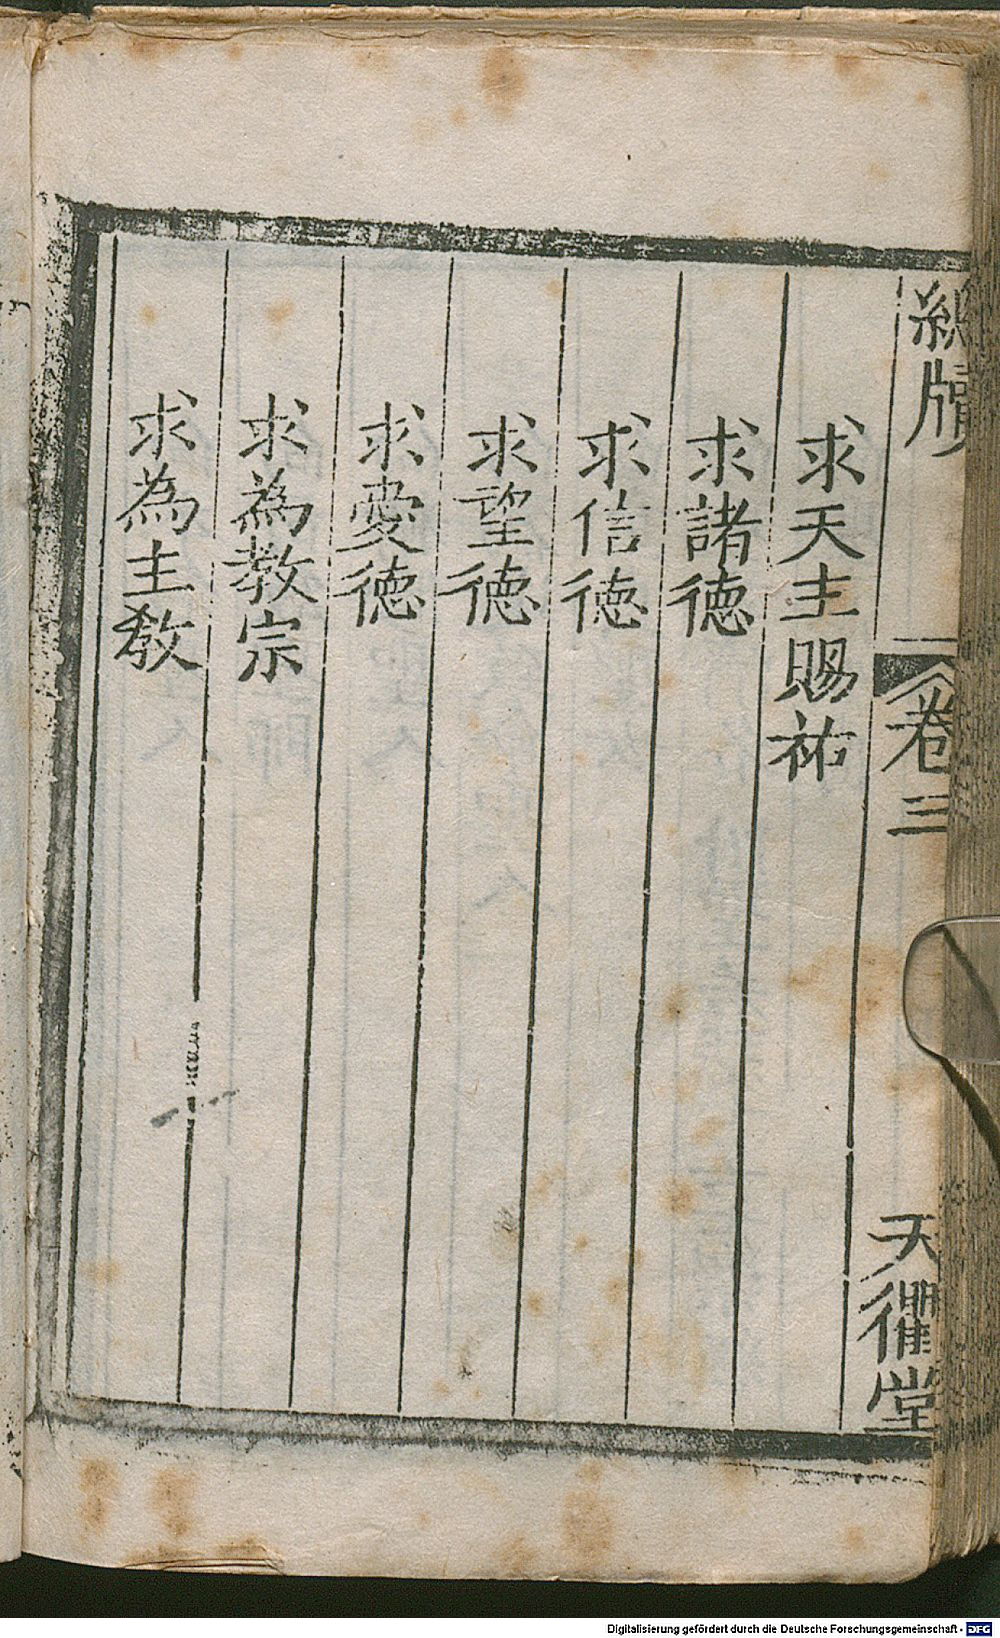 總牘
卷三
天衢堂
求天主賜祐
求諸德
求信德
求望德
求愛德
求為教宗
求為主教
Digitalisierung gefördert durch die Deutsche Forschungsgemeinschaft - DFG